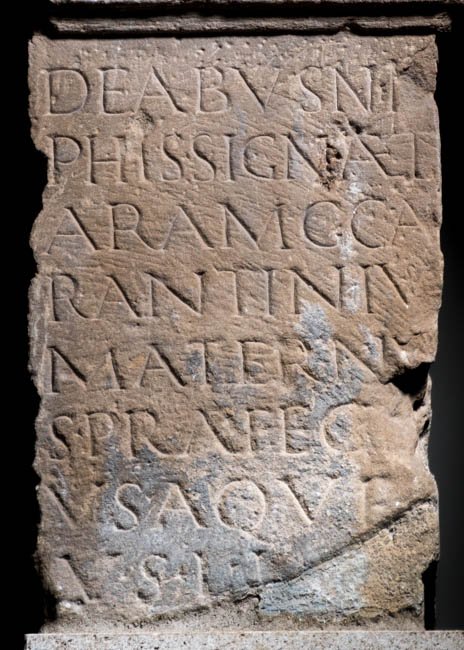 DEABVSNI
PHISSIGNÆT
ARAMGCCA
RANTINIVS
MATERNV
S·PRAEFEC
VSAQVE
V·S·L·